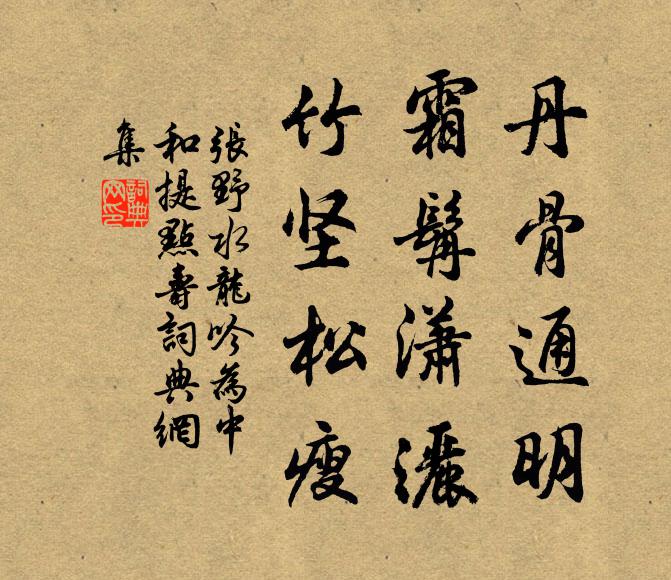 丹骨通明
霜髯潇灑
竹坚松瘦
張野水龍吟為中
和提點壽詞典網
集
詞典网印